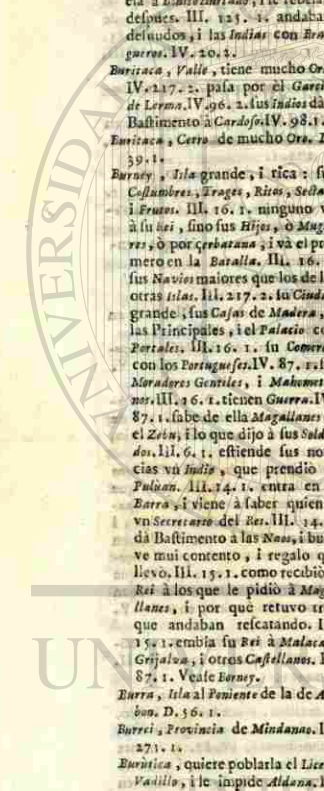 despues. III. 125. 1. andaban
desnudos, i las Indias con Bra
gueros. IV. 20. 2.
Buritaca, Valle, tiene mucho Oro
IV. 217. 2. pasa por èl Garci
de Lerma. IV. 96. 2. sus Indios dà
Bastimento à Cardoso. IV. 98. 1.
Buritaca, Cerro de mucho Oro.
39. 1.
Burney, Isla grande, i rica: su
Costumbres, Trages, Ritos, Secta
i Frutos. III. 16. 1. ninguno v
à su Rei, sino sus Hijos, ò Muge
res, ò por çerbatana, i và el pri
mero en la Batalla. III. 16.
sus Navios maiores que los de l
otras Islas. III. 217. 2. su Ciuda
grande, sus Casas de Madera,
las Principales, i el Palacio co
Portales. III. 16. 1. su Comerc
con los Portugueses. IV. 87. 1.
Moradores Gentiles, i Mahomet
nos. III. 16. 1. tienen Guerra. IV
87. 1. sabe de ella Magallanes
el Zebu, i lo que dijo à sus Solda
dos. III. 6. 1. estiende sus no
cias vn Indio, que prendiò
Puluan. III. 14. 1. entra en
Barra, i viene à saber quien
vn Secretario del Rei. III. 14.
dà Bastimento à las Naos, i bu
ve mui contento, i regalo q
llevò. III. 15. 1. como recibiò
Rei à los que le pidiò à Mag
llanes, i por què retuvo tr
que andaban rescatando. I
15. 1. embia su Rei à Malaca
Grijalva, i otros Castellanos. I
87. 1. Vease Borney.
Burra, Isla al Poniente de la de A
bon. D. 56. 1.
Burrei, Provincia de Mindanao. I
271. 1.
Buritica, quiere poblarla el Lice
Vadillo, i le impide Aldana.